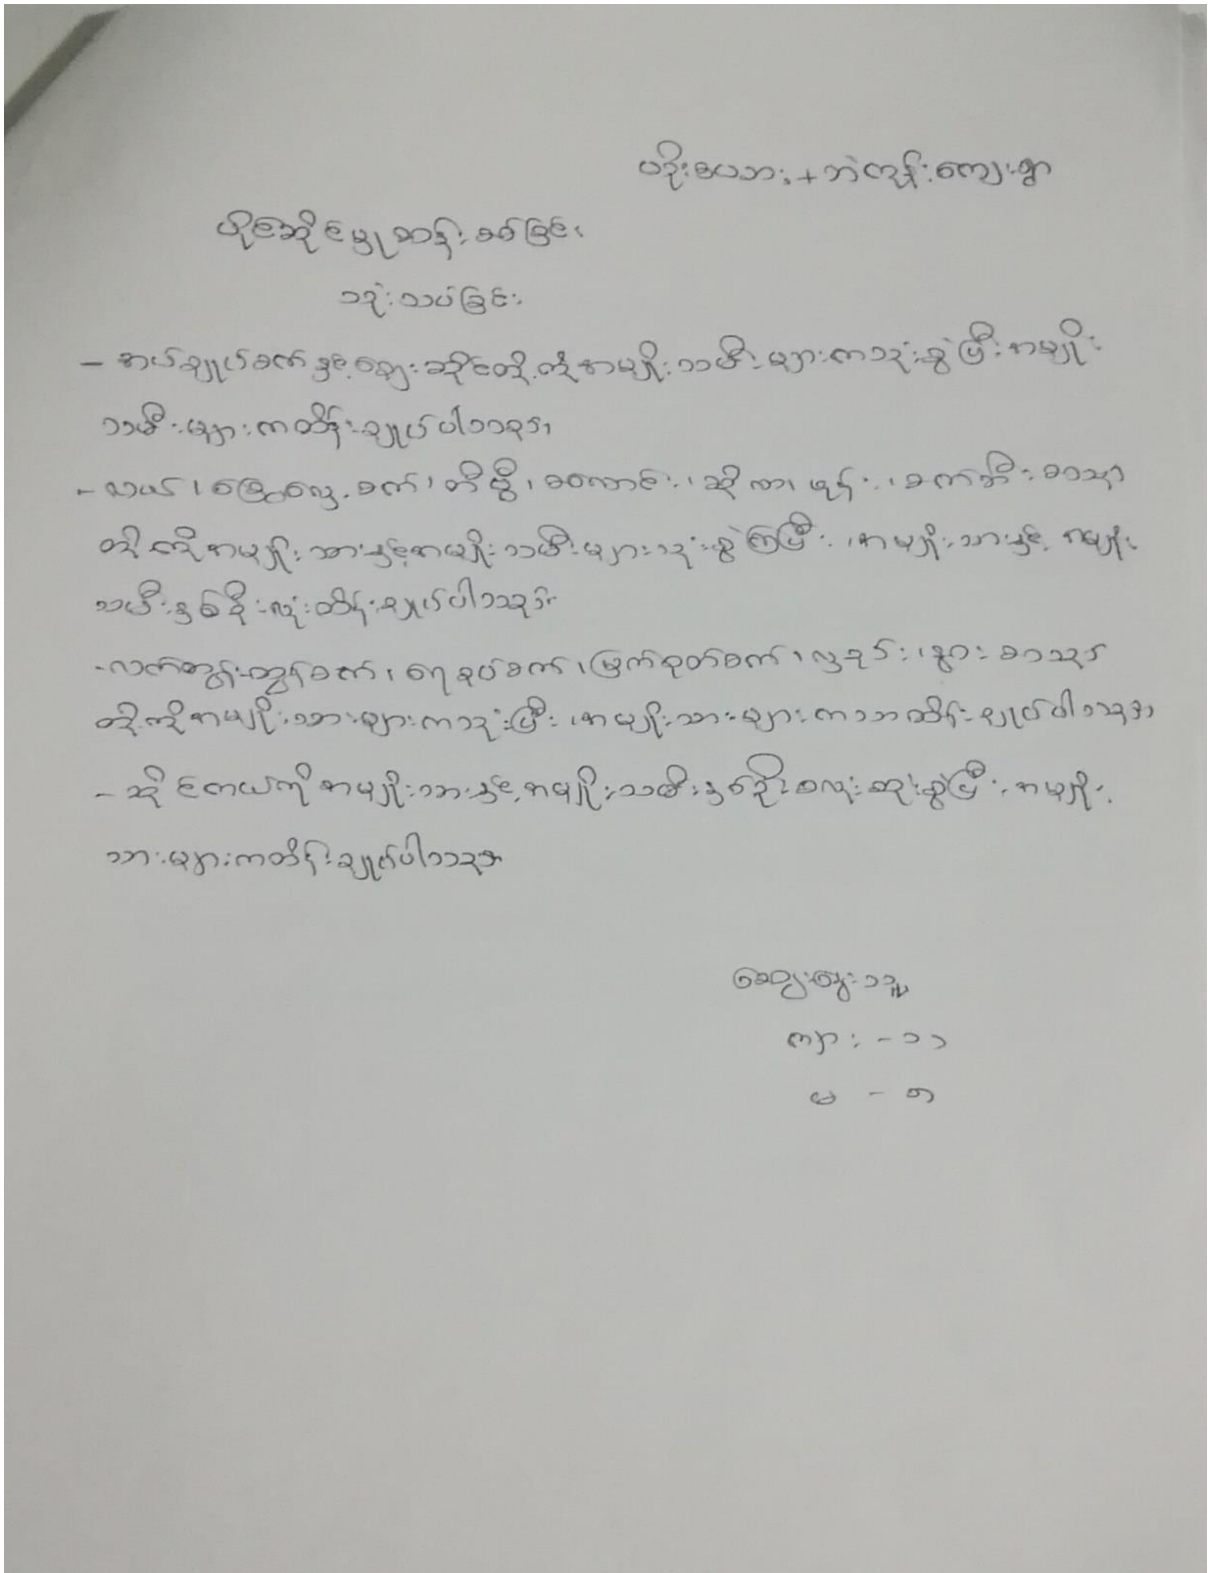 ပဒိုးပေဘား+ဘဲကုန်းကျေးရွာ
ပိုင်ဆိုင်မှုဆန်းစစ်ခြင်း
သုံးသပ်ခြင်း
- စက်ချုပ်စက်နှင့်ဈေးဆိုင်တို့ကိုအမျိုးသမီးများကသုံးစွဲပြီးအမျိုး
သမီးများကထိန်းချုပ်ပါသည်။
- လယ်၊ခြွေလှေ့စက်၊တီဗွီ၊စလောင်း၊ဆိုလာ၊ဖုန်း၊စက်ဘီးစသည်
တို့ကိုအမျိုးသားနှင့်အမျိုးသမီးများသုံးစွဲကြပြီး၊အမျိုးသားနှင့်အမျိုး
သမီးနှစ်ဦးလုံးထိန်းချုပ်ပါသည်။
- လက်တွန်းထွန်စက်၊ရေစုပ်စက်၊မြက်ခုတ်စက်၊လှည်း၊နွားစသည်
တို့ကိုအမျိုးသားများကသုံးပြီး၊အမျိုးသားများကသာထိန်းချုပ်ပါသည်။
- ဆိုင်ကယ်ကိုအမျိုးသားနှင့်အမျိုးသမီးနှစ်ဦးစလုံးသုံးစွဲပြီး၊အမျိုး
သားများကထိန်းချုပ်ပါသည်။
ဆွေးနွေးသူ
ကျား - ၁၁
မ - ၈